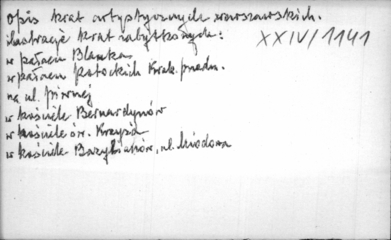 Opis krat artystycznych warszawskich.
ilustracje krat zabytkowych:
XXIV/1141
w pałacu Blanka
w pałacu Potockich Krak. przedm.
na ul. Piwnej
w kościele Bernardynów
w kościele św. Krzyża
w kościele Bazylianów, ul. Miodowa